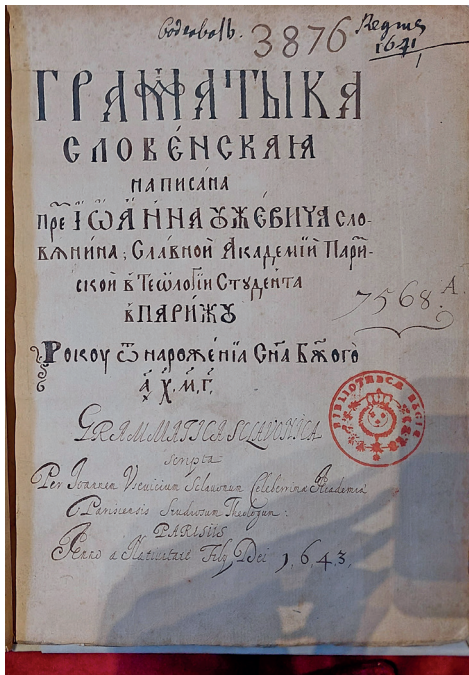 3876 Regius
1641
ГРАММАТЫКА
СЛОВЕ́НСКАꙖ
НАПИСАНА
Пре́ІѠА́ННА УЖЕВИЧА Сло-
вѧнина, Славной Академїй Пари́-
ской в̾ Теѡлоґїи Студента
в̾ ПАРИ́ЖУ
Рокоу ѿ нарожѐнїа Сн҃а Бж҃ого
҂а҃ х҃ м҃ г҃
7568. A.
GRAMMATICA SCLAVONICA
scripta
Per Joannem Vsevicium Sclavonum Celeberrimæ Academiæ
Pariscensis Studiosum Theologum:
PARISIIS
Anno a Nativitate Filij Dei 1.6.4.3.
BIBLIOTHECÆ REGIÆ